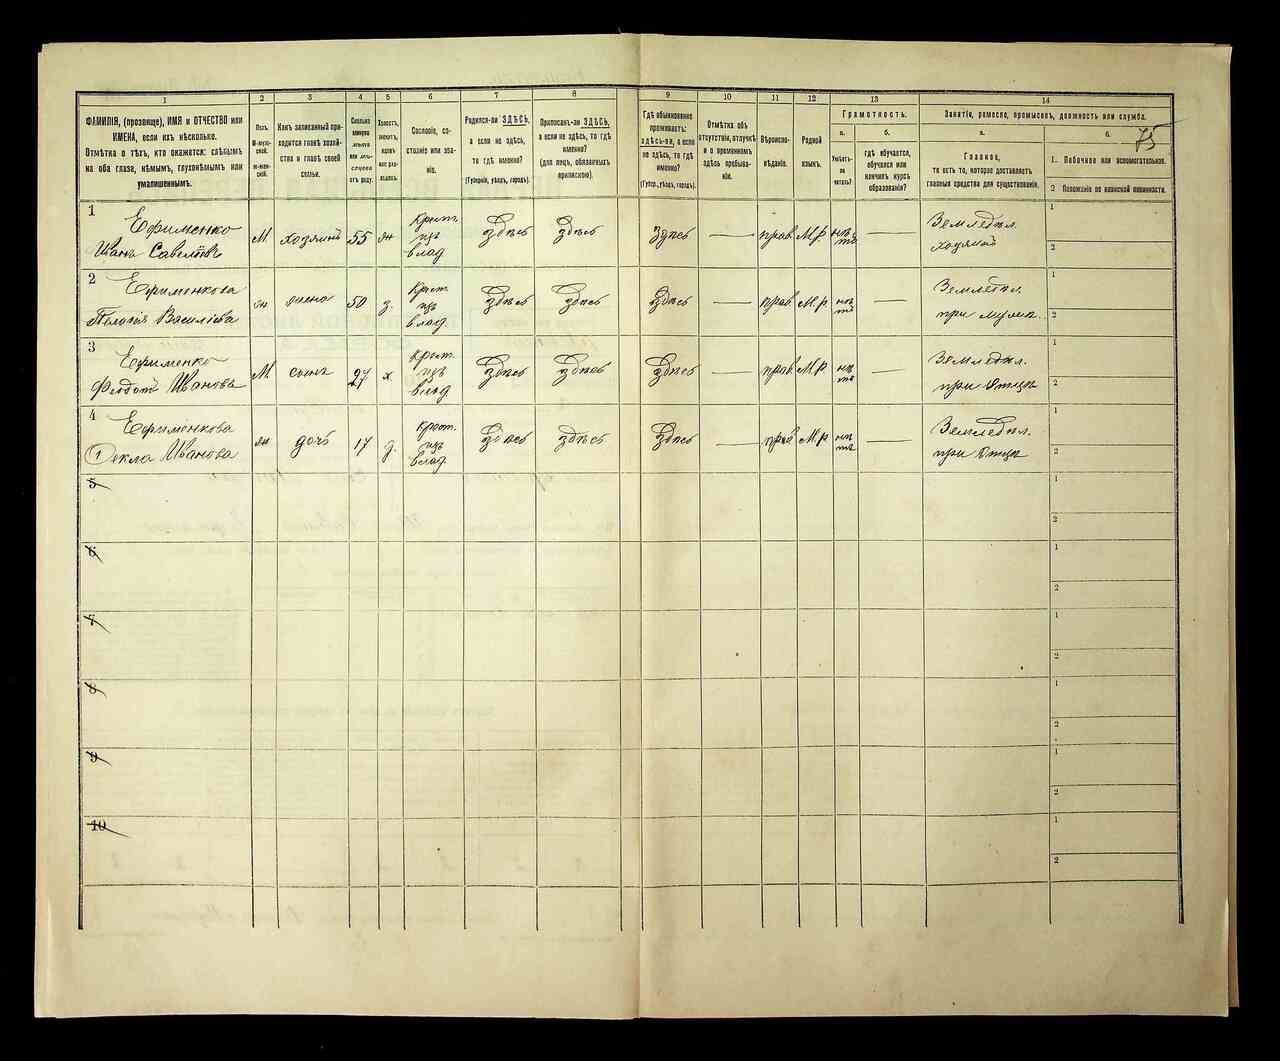 1
2
3
4
5
6
7
8
9
10
11
12
13
14
ФАМИЛІЯ, (прозвище), ИМЯ и ОТЧЕСТВО или
ИМЕНА, если ихъ нѣсколько.
Отмѣтка о тѣхъ, кто окажется: слѣпымъ
на оба глаза, нѣмымъ, глухонѣмымъ или
умалишеннымъ.
Полъ.
М-муж-
ской.
Ж-жен-
скій.
Какъ записанный при-
ходится главѣ хозяй-
ства и главѣ своей
семьи.
Сколько
минуло
лѣтъ
или мѣ-
сяцевъ
отъ роду.
Холостъ,
женатъ,
вдовъ
или раз-
веденъ.
Сословіе, со-
стояніе или зва-
ніе.
Родился-ли ЗДѢСЬ,
а если не здѣсь,
то гдѣ именно?
(Губернія, уѣздъ, городъ).
Приписанъ-ли ЗДѢСЬ,
а если не здѣсь, то гдѣ
именно?
(для лицъ, обязанныхъ
припискою).
Гдѣ обыкновенно
проживаетъ:
здѣсь-ли, а если
не здѣсь, то гдѣ
именно?
(Губер., уѣздъ, городъ).
Отмѣтка объ
отсутствіи, отлучкѣ
и о временномъ
здѣсь пребыва-
ніи.
Вѣроиспо-
вѣданіе.
Родной
языкъ.
Грамотность.
а.
Умѣетъ-
ли
читать?
б.
гдѣ обучается,
обучался или
кончилъ курсъ
образованія?
Занятіе, ремесло, промыселъ, должность или служба.
а.
Главное,
то есть то, которое доставляетъ
главныя средства для существованія.
б.
75
1. Побочное или вспомогательное.
2 Положеніе по воинской повинности.
1
Ефименко
Иванъ Савеліевъ
М. хозяинъ 55 ж
Крест.
изъ
влад.
здѣсь здѣсь здѣсь — прав М.р нѣтъ —
Земледѣл.
хозяинъ
1
2
2
Ефименкова
Пелагія Василіева
ж жена 50 з.
Крест.
изъ
влад.
здѣсь здѣсь здѣсь — прав М.р нѣтъ —
Земледѣл.
при мужѣ.
1
2
3
Ефименко
Федотъ Иванова
М сынъ 27 х.
Крест.
изъ
влад
здѣсь здѣсь здѣсь — прав М.р нѣтъ —
Земледѣл.
при Отцѣ
1
2
4
Ефименкова
Фекла Иванова
ж дочь 17 д.
Крест.
изъ
влад.
здѣсь здѣсь здѣсь — прав М.р нѣтъ —
Земледѣл.
при Отцѣ
1
2
5
1
2
6
1
2
7
1
2
8
1
2
9
1
2
10
1
2